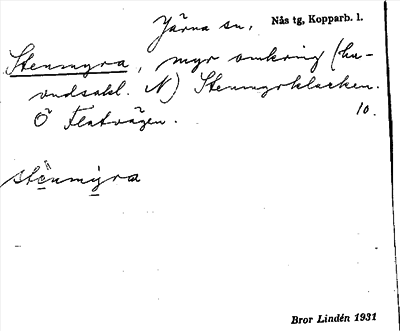 Järna sn. Nås tg, Kopparb. l.
Stenmyra, myr omkring (hu-
vudsakl. N) Stenmyrklacken.
Ö Flatvägen. 10.
stènmýra
Bror Lindén 1931